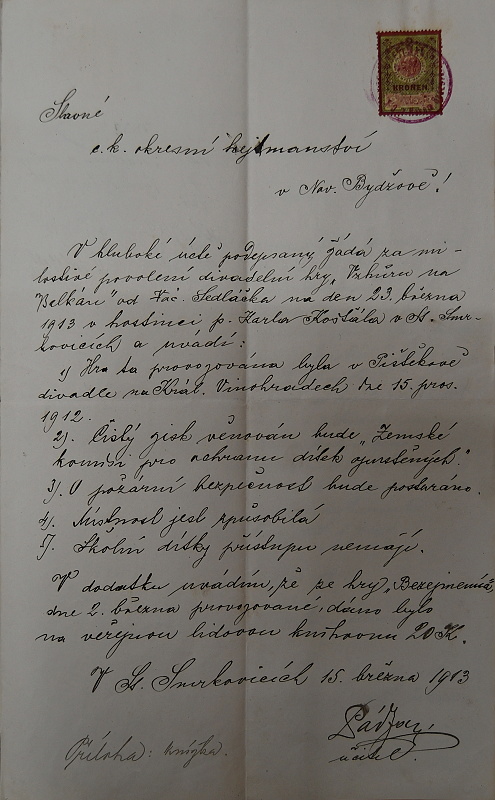 KRONEN
Slavné
c. k. okresní hejtmanství
v Nov. Bydžově!
V hluboké úctě podepsaný žádá za mi-
lostivé povolení divadelní hry „Vzhůru na
Balkán" od Vác. Sedláčka na den 23. března
1913 v hostinci p. Karla Košťála v St. Smr-
kovicích a uvádí:
1) Hra ta provozována byla v Pištěkově
divadle na Král. Vinohradech dne 15. pros.
1912.
2). Čistý zisk věnován bude „Zemské
komisi pro ochranu dítek opuštěných".
3). O požární bezpečnost bude postaráno.
4). Místnost jest způsobilá
5). Školní dítky přístupu nemají.
V dodatku uvádím, že ze hry „Bezejmenná,
dne 2. března provozované, dáno bylo
na veřejnou lidovou knihovnu 20 K.
V St. Smrkovicích 15. března 1913
učitel.
Příloha: knížka.